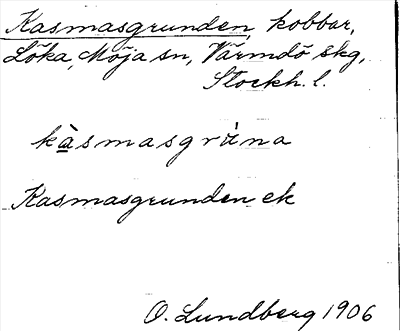 Kasmasgrunden, kobbar,
Löka, Möja sn, Värmdö skg,
Stockh. l.
kàsmasgrùna
Kasmasgrunden ek
O. Lundberg 1906